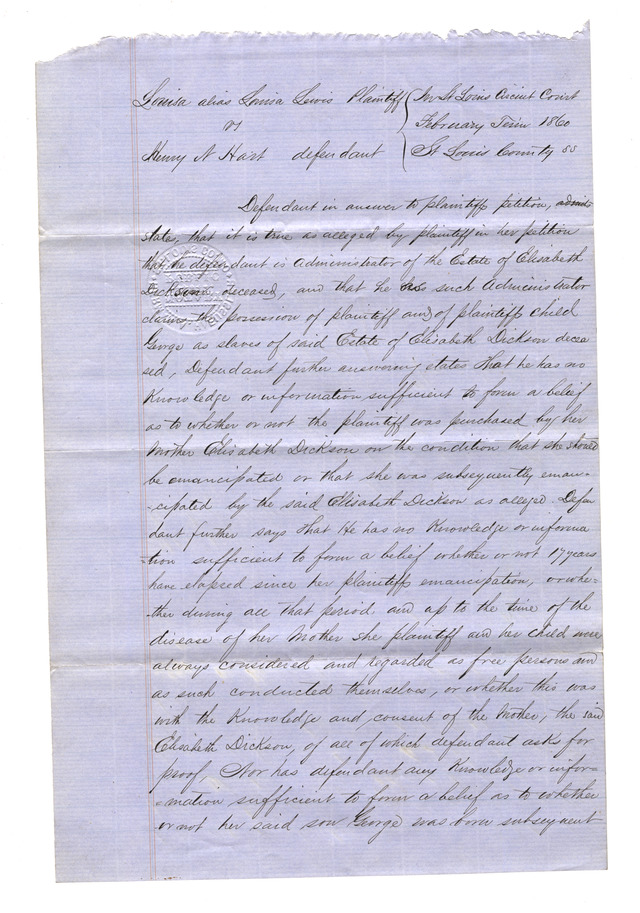 Louisa alias Louisa Lewis Plaintiff
vs
Henry N Hart defendant
In St Louis Circuit Court
February Term 1860
St Louis County ss
Defendant in answer to plaintiffs petition,
state, that it is true as alleged by plaintiff in her petition
that he defendant is Administrator of the Estate of Elisabeth
Dickson deceased, and that he as such Administrator
claims the possession of plaintiff and of plaintiffs child
George as slaves of said Estate of Elisabeth Dickson decea
sed, Defendant further answering states that he has no
Knowledge or information sufficient to form a belief
as to whether or not the plaintiff was purchased by her
Mother Elisabeth Dickson on the condition that she should
be emancipated or that she was subsequently eman-
-cipated by the said Elisabeth Dickson as alleged. Defen
dant further says that He has no Knowledge or informa
-tion sufficient to form a belief whether or not 17 years
have elapsed since her plaintiffs emancipation, or whe-
-ther during all that period and up to the time of the
disease of her Mother she plaintiff and her child were
always considered and regarded as free persons and
as such conducted themselves, or whether this was
with the Knowledge and consent of the Mother, the said
Elisabeth Dickson, of all of which defendant asks for
proof, Nor has defendant any Knowledge or infor-
-mation sufficient to form a belief as to whether
or not her said son George was born subsequent